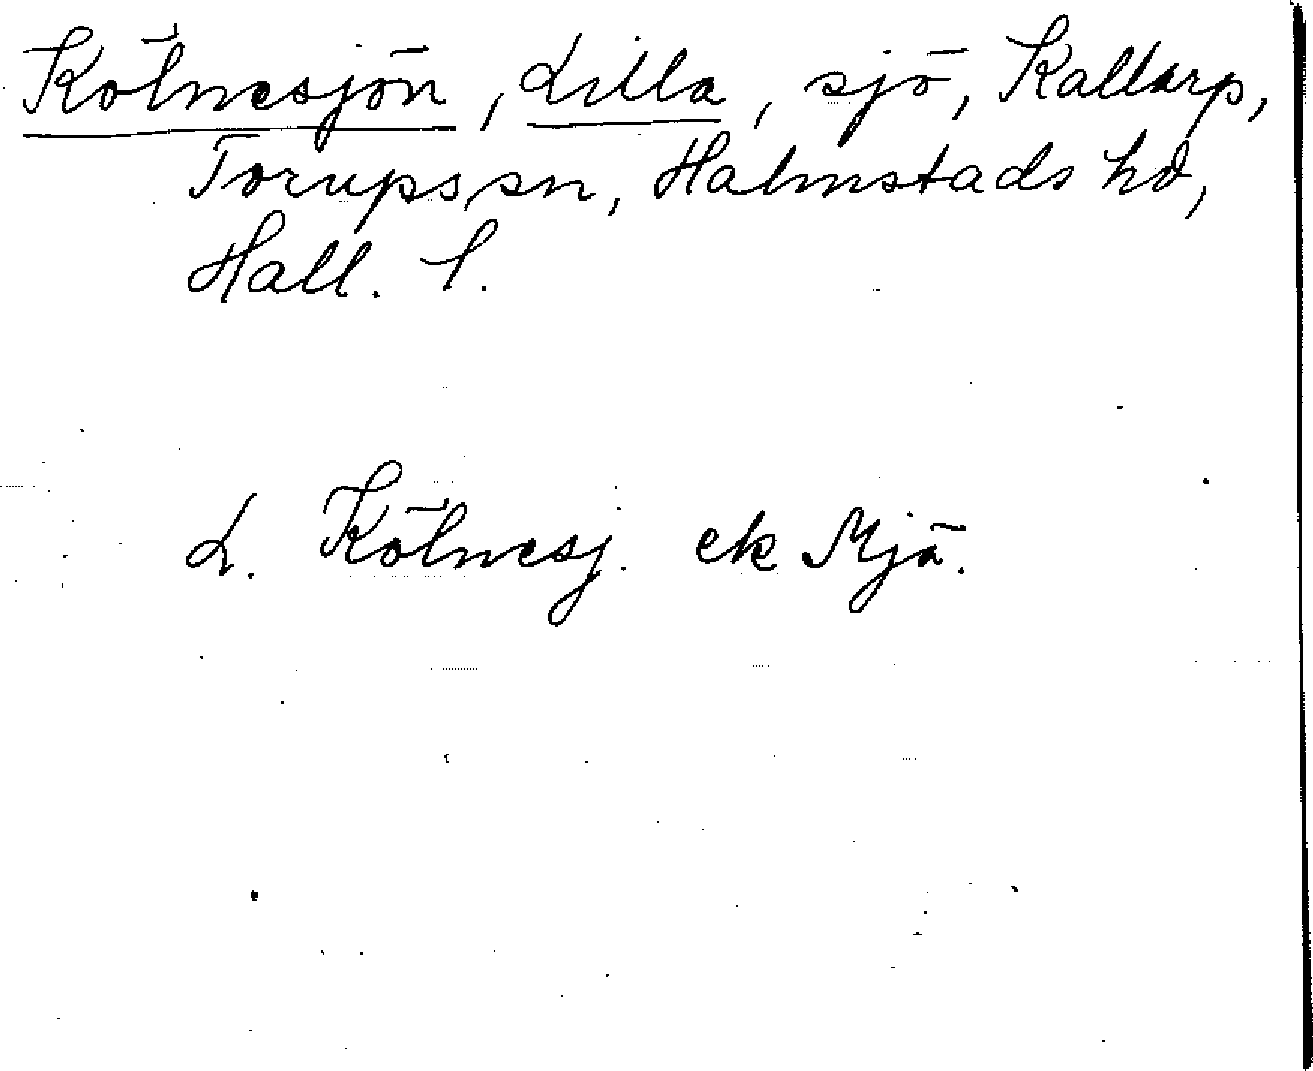 Kölnesjön, Lilla, sjö, Kallarp,
Torups sn, Halmstads hd,
Hall. l.
L. Kölnesj. ek Mjä.